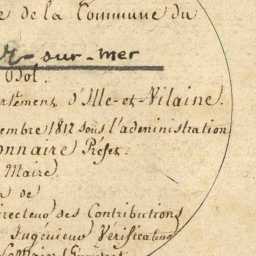 e de la Commune du
r-sur-mer
Dol.
artement d'Ille-et-Vilaine.
embre 1812 sous l'administration
onnaire Préfet.
Maire.
n de
irecteur des Contributions
Ingénieur Vérificateur